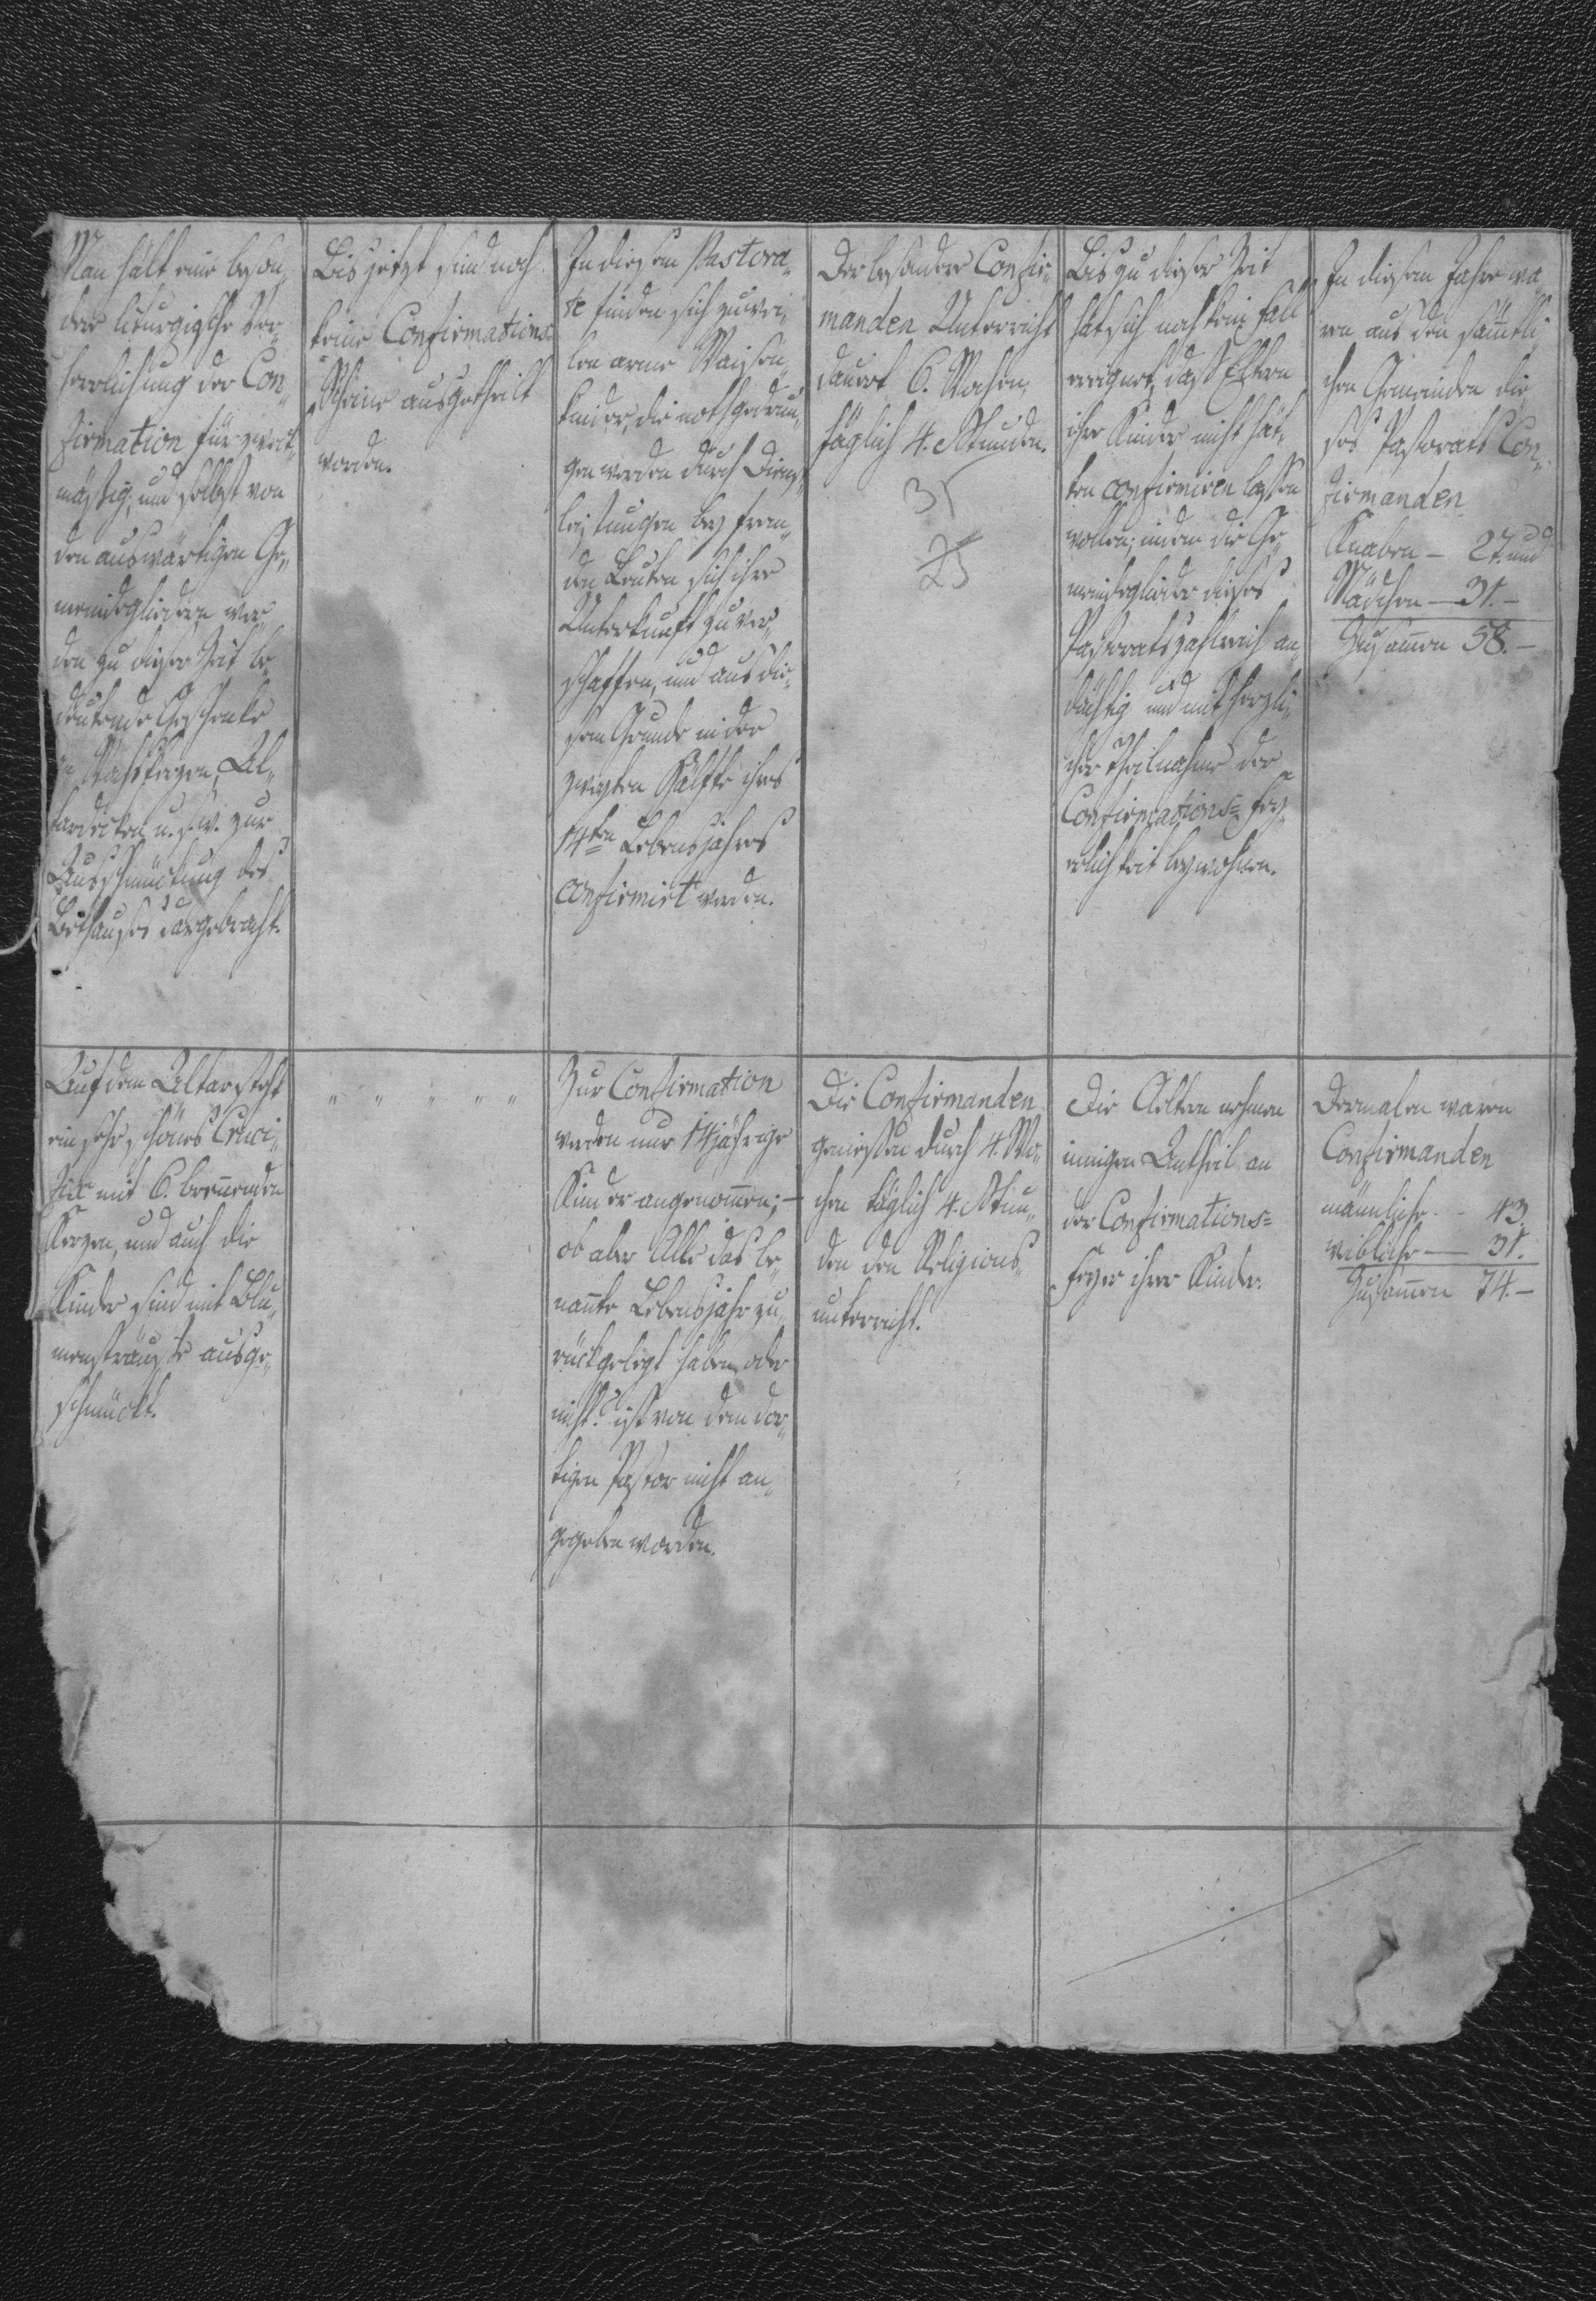 Man hält eine beson„
dere liturgische Ver„
herrlichung der Con„
firmation für zweck„
mäßig; und selbst von
den auswärtigen Ge„
meindegliedern wer„
den zu dieser Zeit be„
deutende Geschenke
in Wachskerzen, Al„
tardecken u. s. w. zur
Ausschmückung des
Bethauses dargebracht.
Bis jetzt sind noch
keine Confirmations
Scheine ausgetheilt
worden.
In diesem Pastora„
te finden sich zuwei„
len arme Waisen„
kinder, die nothgedrun„
gen werden durch Dienst„
leistungen bey frem„
den Leuten sich ihre
Unterkunft zu ver„
schaffen, und aus die„
sem Grunde in der
zweyten Hälfte ihres
14ten Lebensjahres
confirmirt werden.
Der besondere Confir„
manden Unterricht
dauert 6. Wochen,
täglich 4. Stunden.
35
25
Bis zu dieser Zeit
hat sich noch kein Fall
ereignet, daß Eltern
ihre Kinder nicht hät„
ten confirmiren lassen
wollen; indem die Ge„
meindeglieder dieses
Pastorats zahlreich an„
dächtig und mit herzli„
cher Theilnahme der
Confirmations= Fey„
erlichkeit beywohnen.
In diesem Jahre wa„
ren aus den sämmtli„
chen Gemeinden die„
ses Pastorats Con„
firmanden
Knaben — 27. und
Mädchen — 31. —
Zusammen 58. —
Auf dem Altar steht
ein sehr schönes Cruci„
fix mit 6. brennenden
Kerzen, und auch die
Kinder sind mit Blu„
mensträuße ausge„
schmückt.
„ „ „ „ „
Zur Confirmation
werden nur 14jährige
Kinder angenommen; —
ob aber Alle das be„
nannte Lebensjahr zu„
rückgelegt haben oder
nicht? ist von dem dor„
tigen Pastor nicht an„
gegeben worden.
Die Confirmanden
genießen durch 4. Wo„
chen täglich 4. Stun„
den den Religions„
unterricht.
Die Aeltern nehmen
innigen Antheil an
der Confirmations=
Feyer ihrer Kinder.
Dermalen waren
Confirmanden
männliche - - 43.
weibliche — 31.
Zusammen 74. —